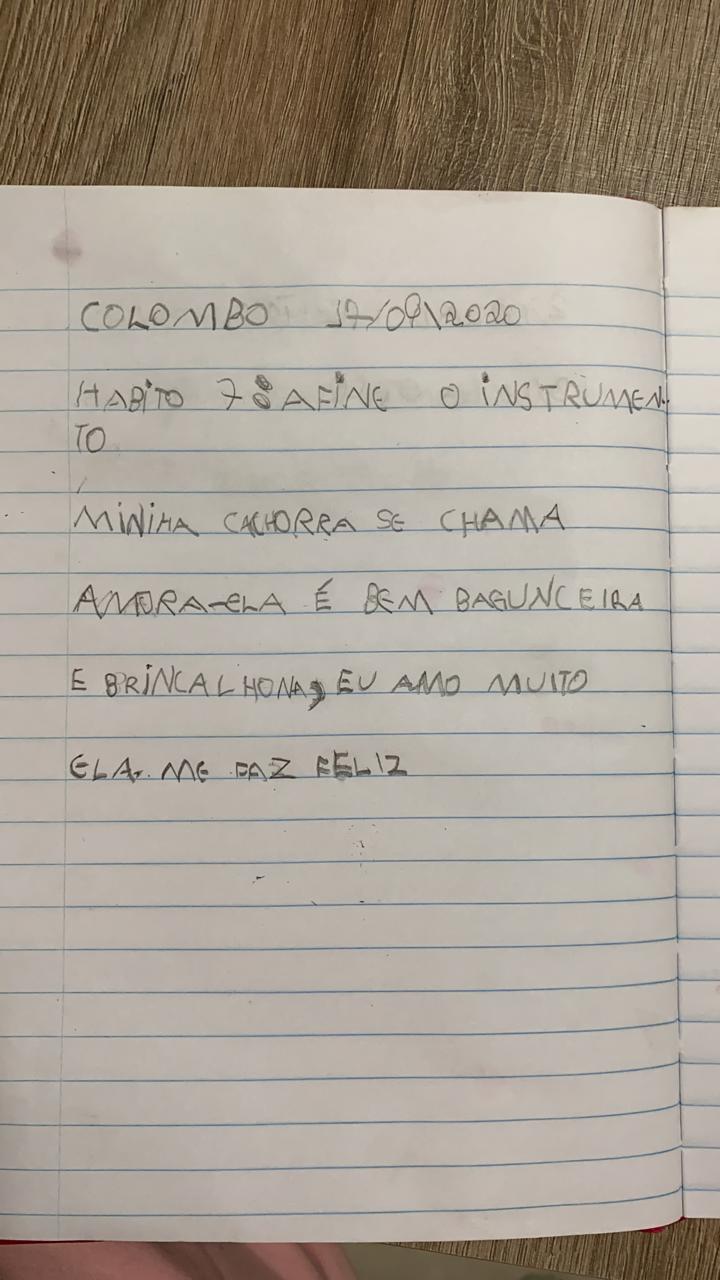 COLOMBO 17/09\2020
HABITO 7: AFINE O INSTRUMEN-
TO
MINIHA CACHORRA SE CHAMA
AMORA-ELA É BEM BAGUNCEIRA
E BRINCALHONA, EU AMO MUITO
ELA. ME FAZ FELIZ